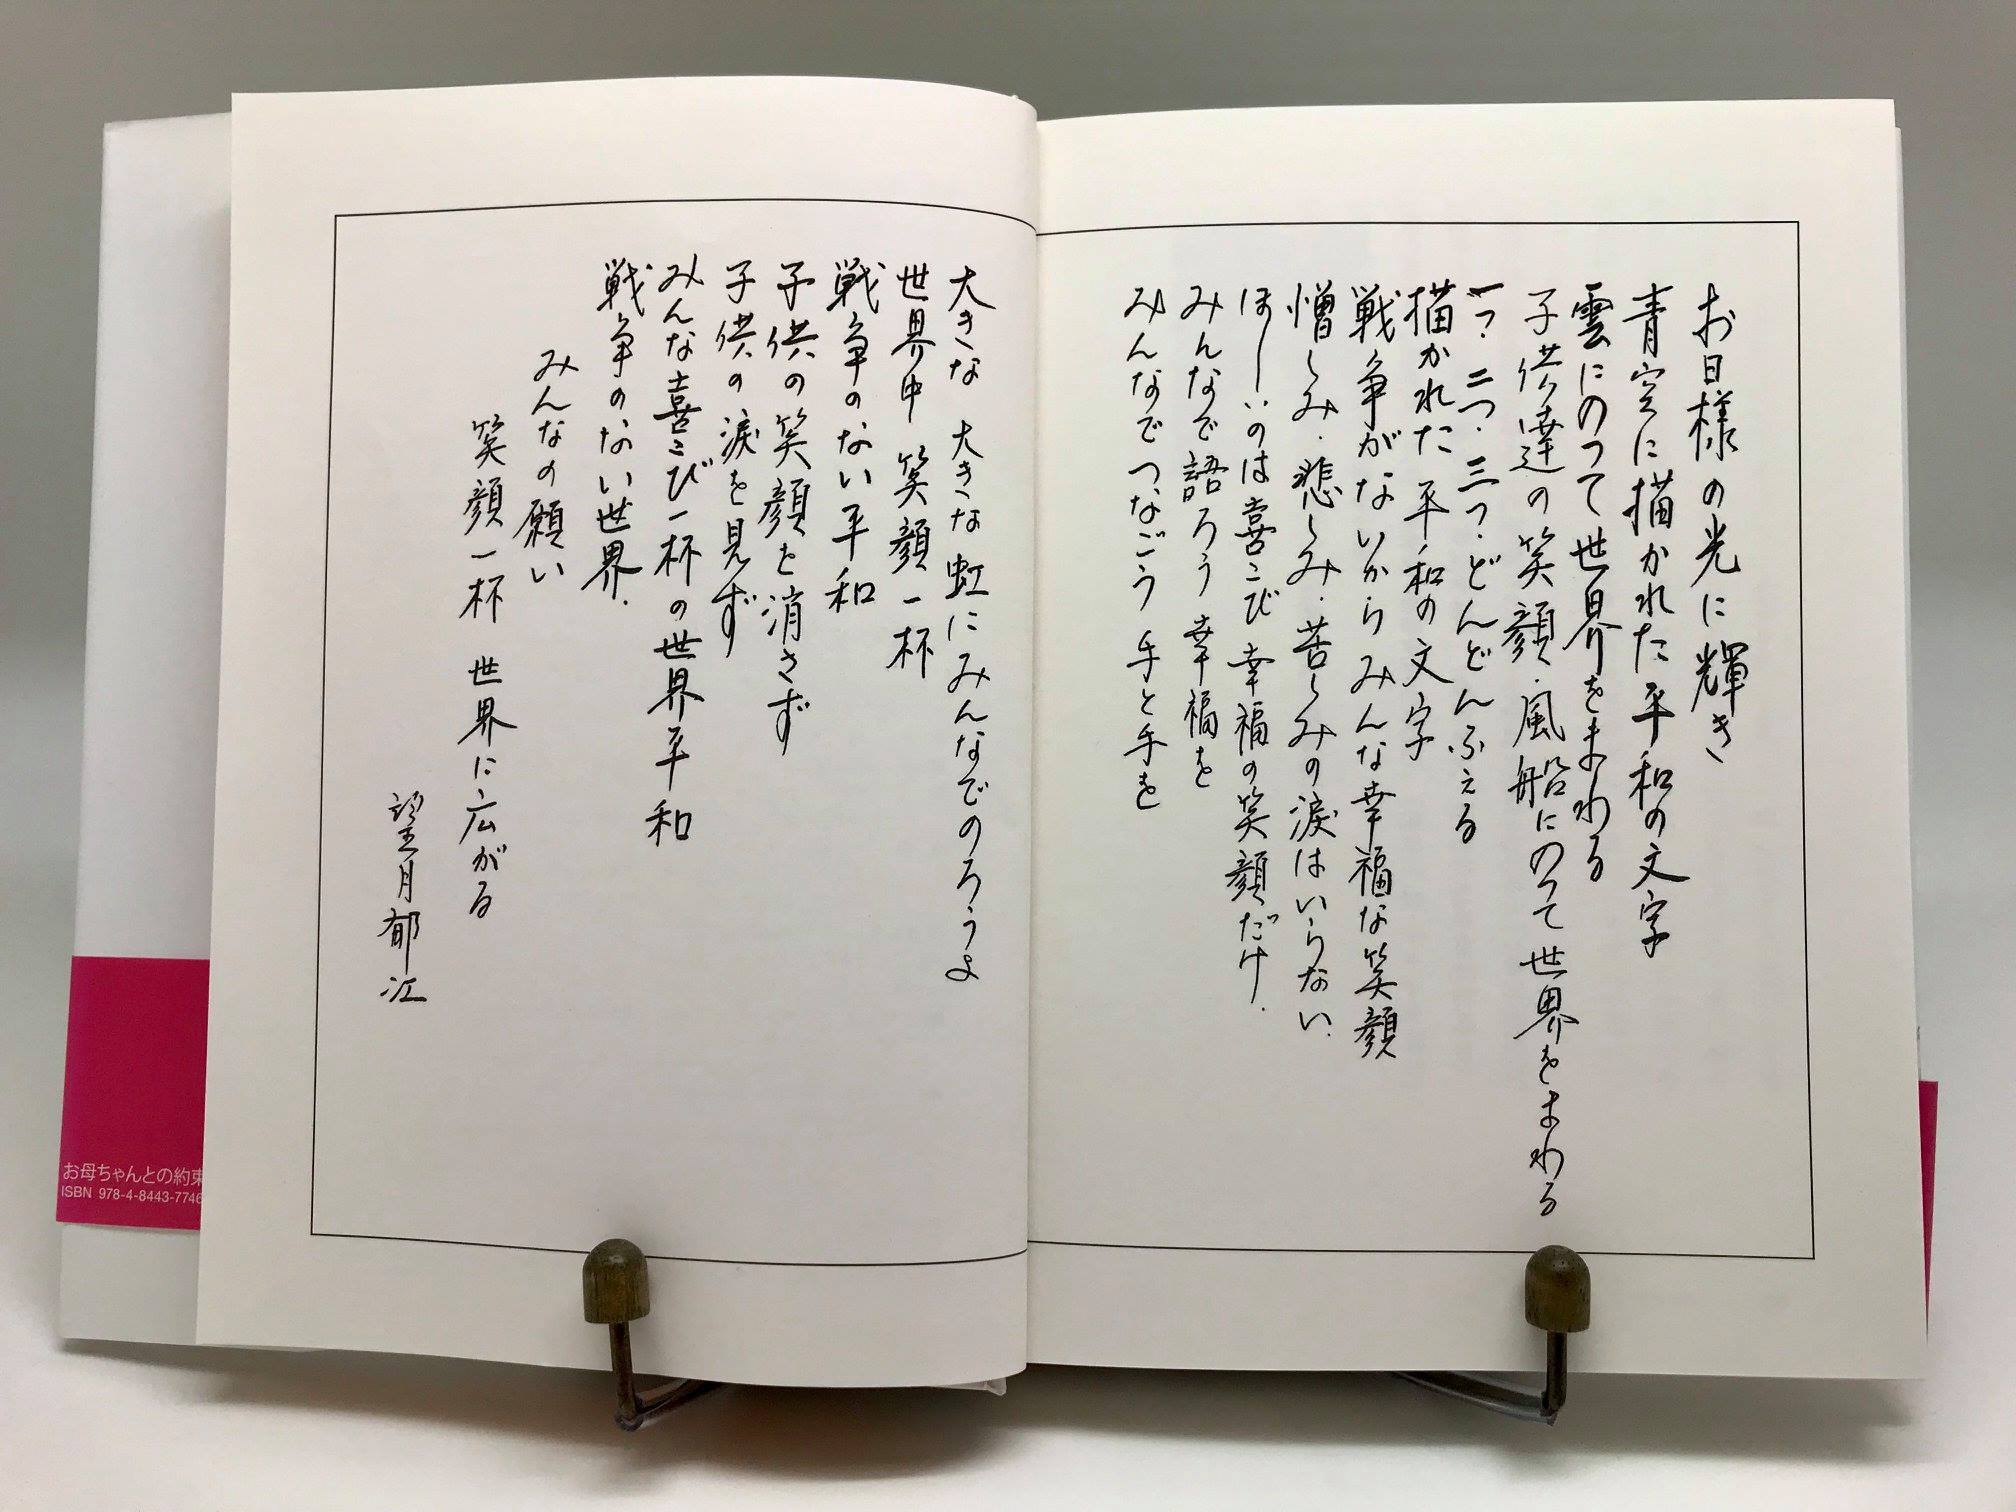 お日様の光に輝き
青空に描かれた平和の文字
雲にのって世界をまわる
子供達の笑顔・風船にのって世界をまわる
一つ・二つ・三つ・どんどんふえる
描かれた平和の文字
戦争がないからみんな幸福な笑顔
憎しみ・悲しみ・苦しみの涙はいらない
ほしいのは喜こび幸福の笑顔だけ・
みんなで語ろう 幸福を
みんなでつなごう 手と手を
大きな 大きな虹にみんなでのろうよ
世界中 笑顔一杯
戦争のない平和
子供の笑顔を消さず
子供の涙を見ず
みんな喜こび一杯の世界平和
戦争のない世界・
みんなの願い
笑顔一杯 世界に広がる
望月郁江
お母ちゃんとの約束
ISBN 978-4-8443-7746